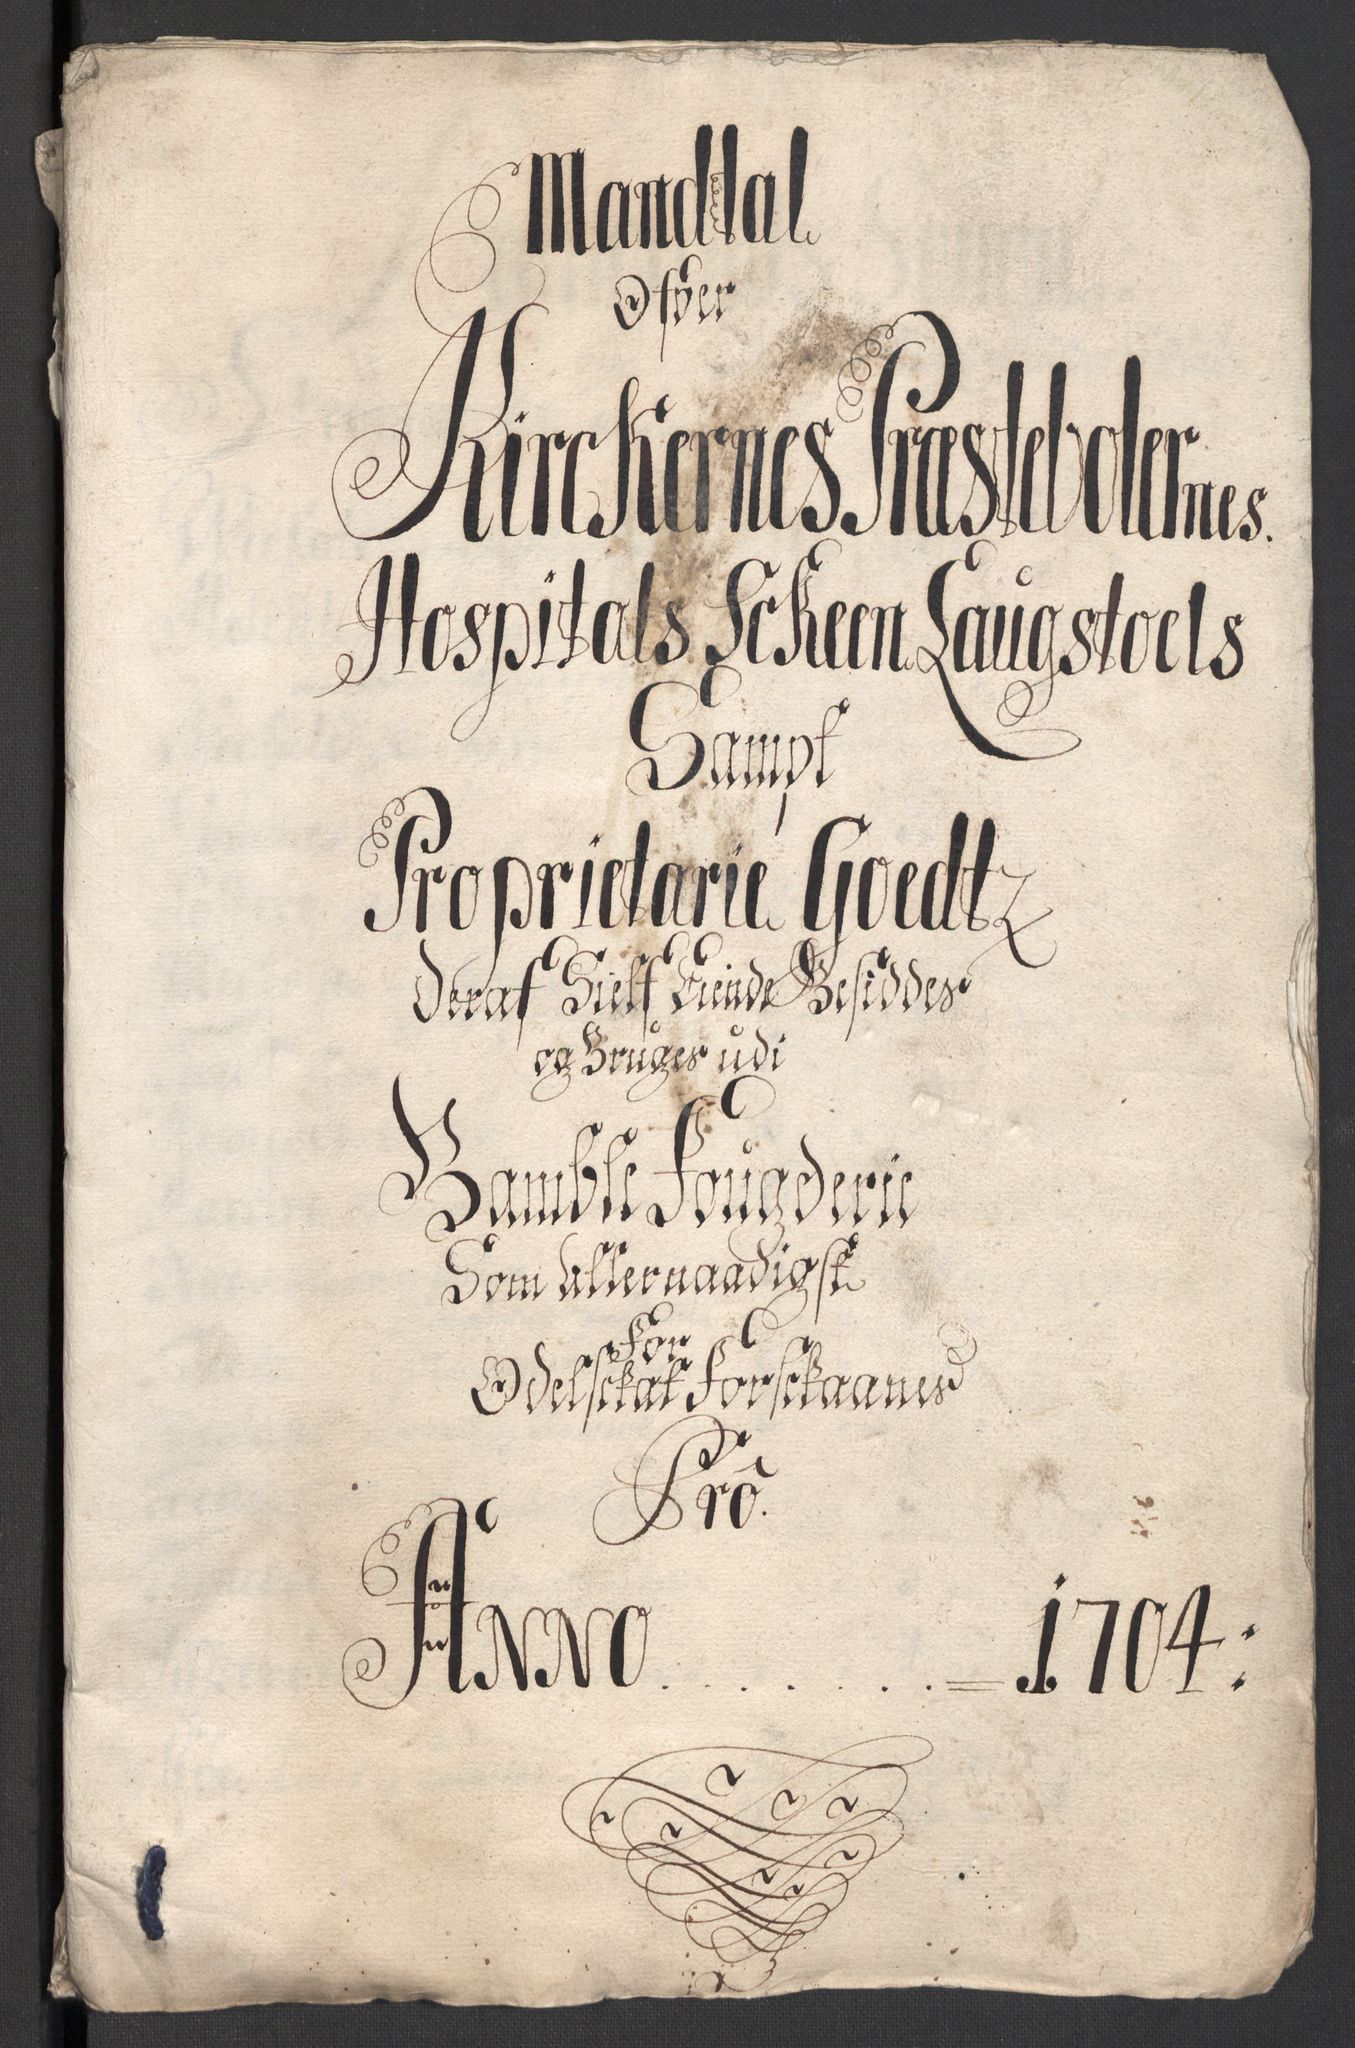 Mandtal
Ofver
Kirckernes Præstebolernes.
Hospitals Sckeen Laugstoels
Sampt
Proprietarie Goedtz
Deraf Sielf Eiende Besiddes
og Bruges udi
Bamble Fougderie
Som Allernaadigst
for
Odelsckat Forsckaanes
Pro.
Anno . . . . . . . = 1704: